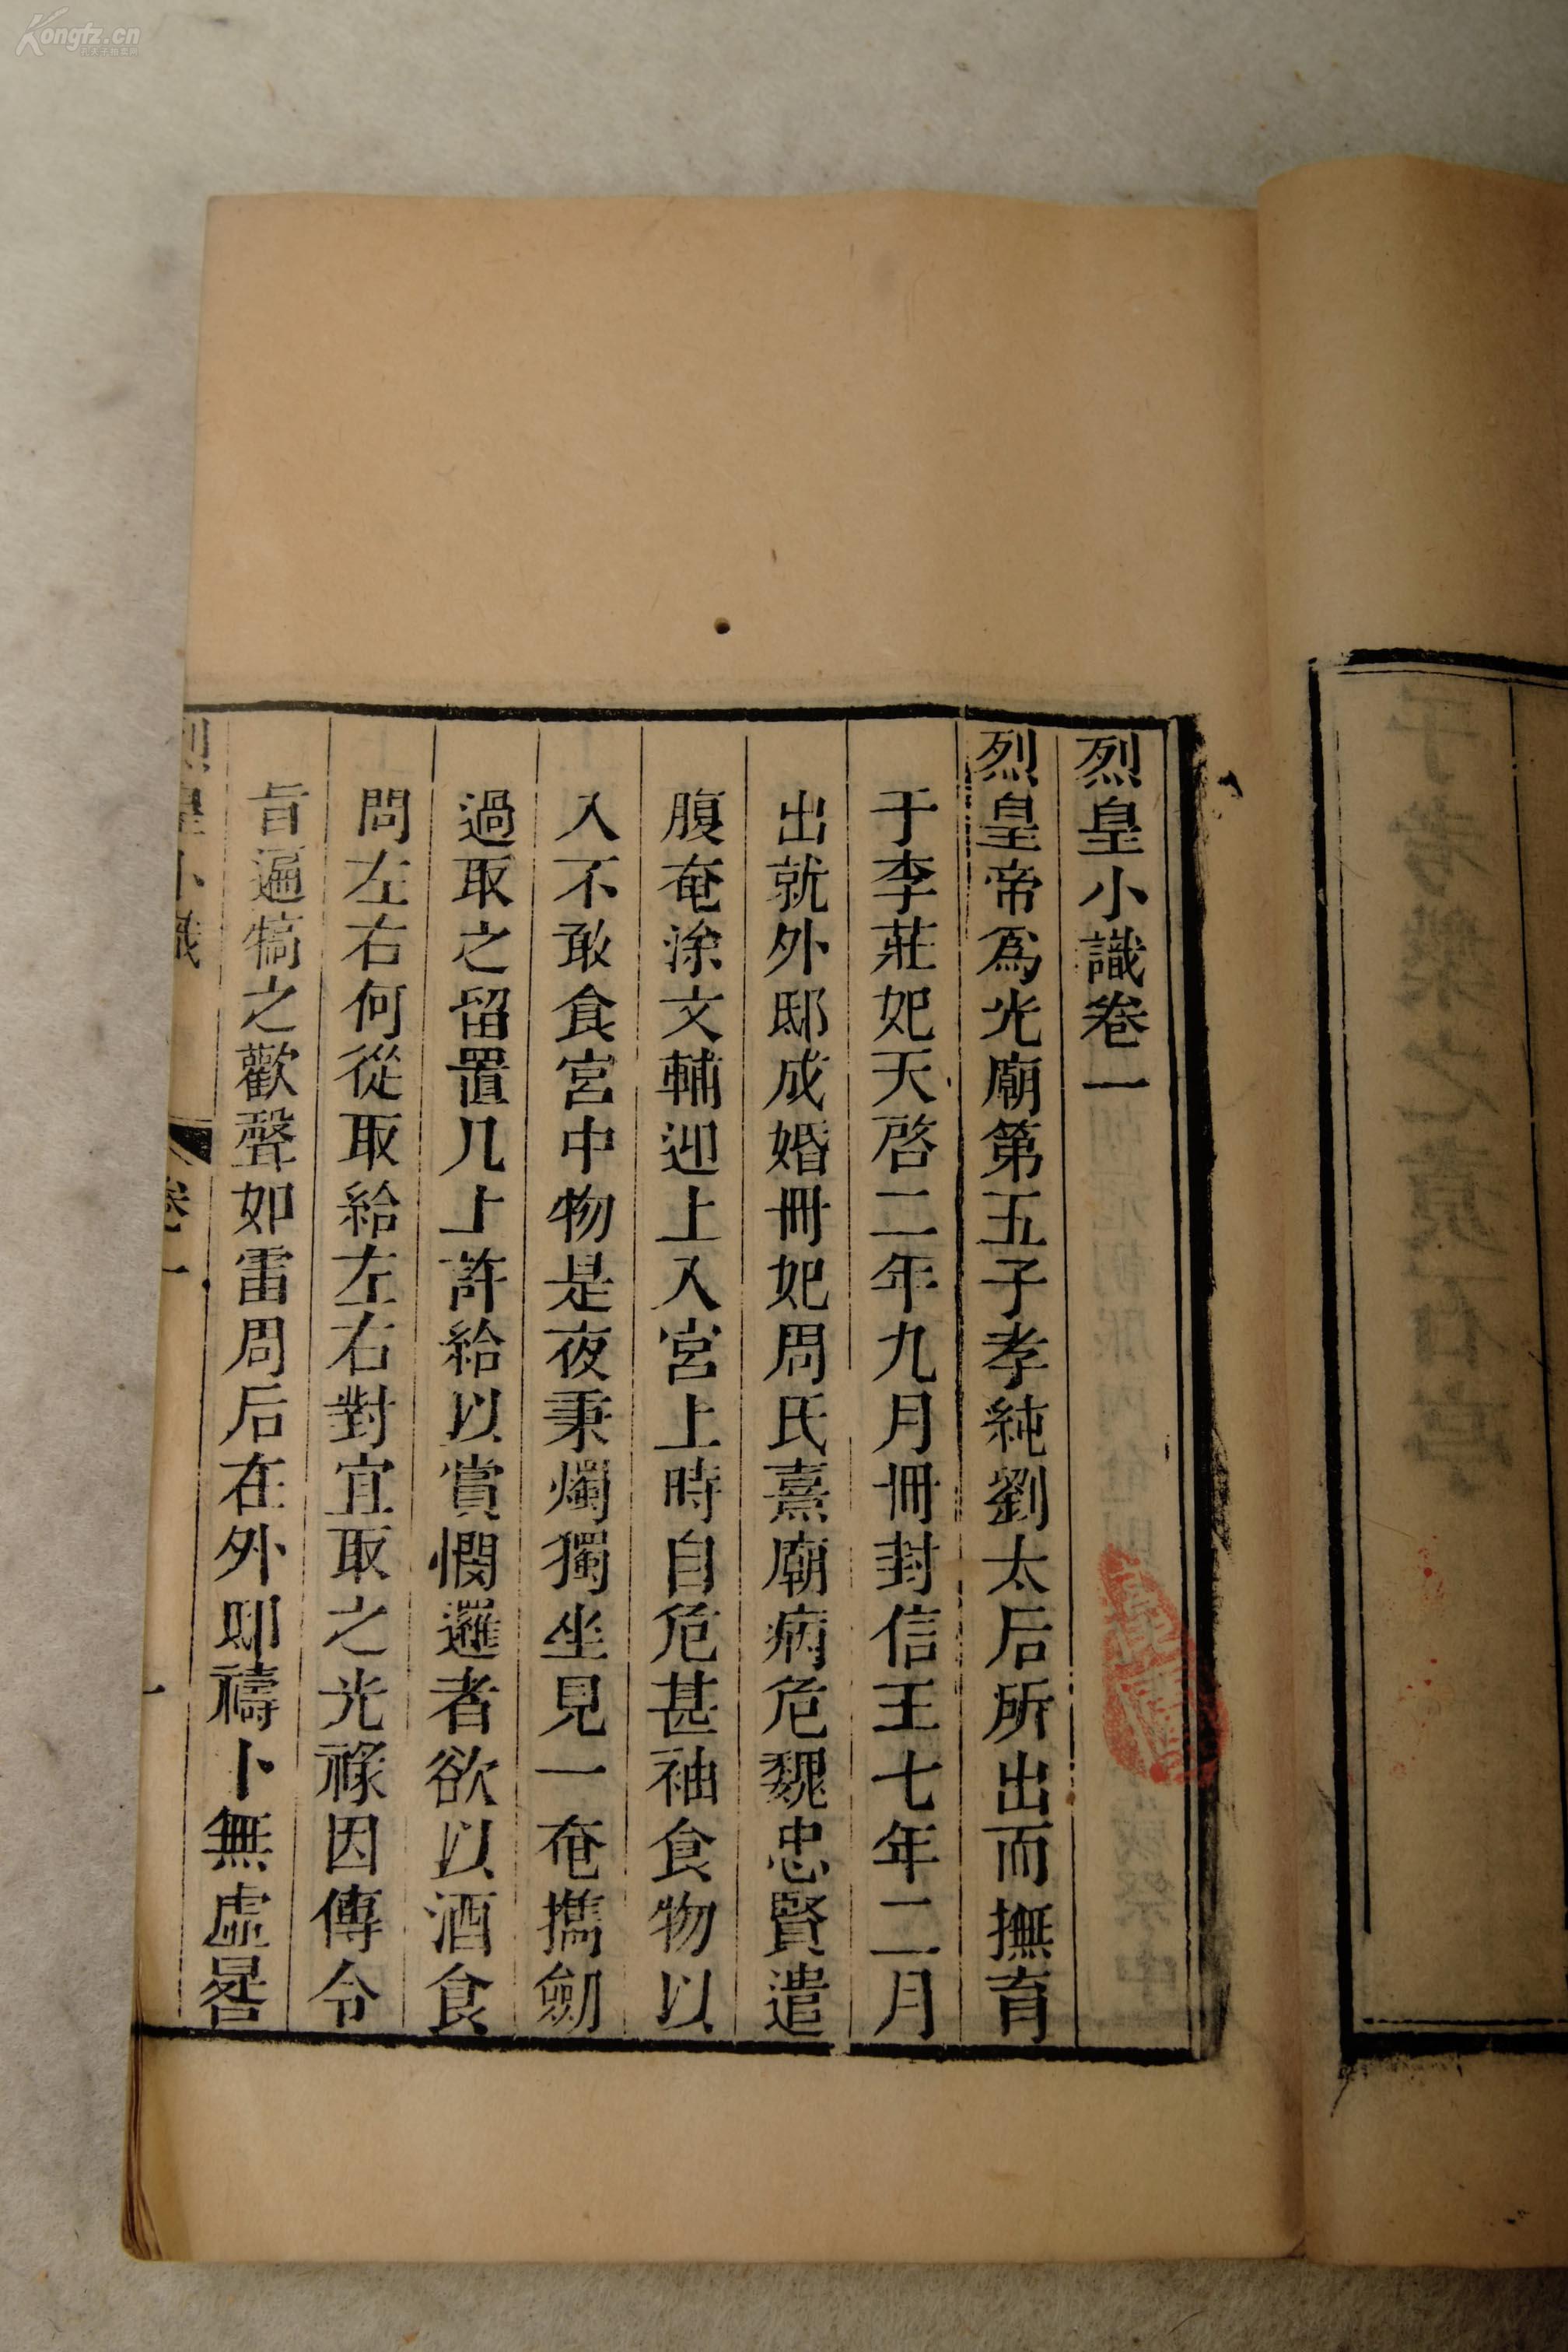 烈皇小識卷一
烈皇帝爲光廟第五子孝純劉太后所出而撫育
于李莊妃天啓二年九月冊封信王七年二月
出就外邸成婚冊妃周氏熹廟病危魏忠賢遣
腹奄涂文輔迎上入宮上時自危甚袖食物以
入不敢食宮中物是夜秉燭獨坐見一奄攜劒
過取之留置几上許給以賞憫邏者欲以酒食
問左右何從取給左右對宜取之光祿因傳令
旨遍犒之歡聲如雷周后在外邸禱卜無虛晷
烈皇小識 卷一 一
Kongfz.cn